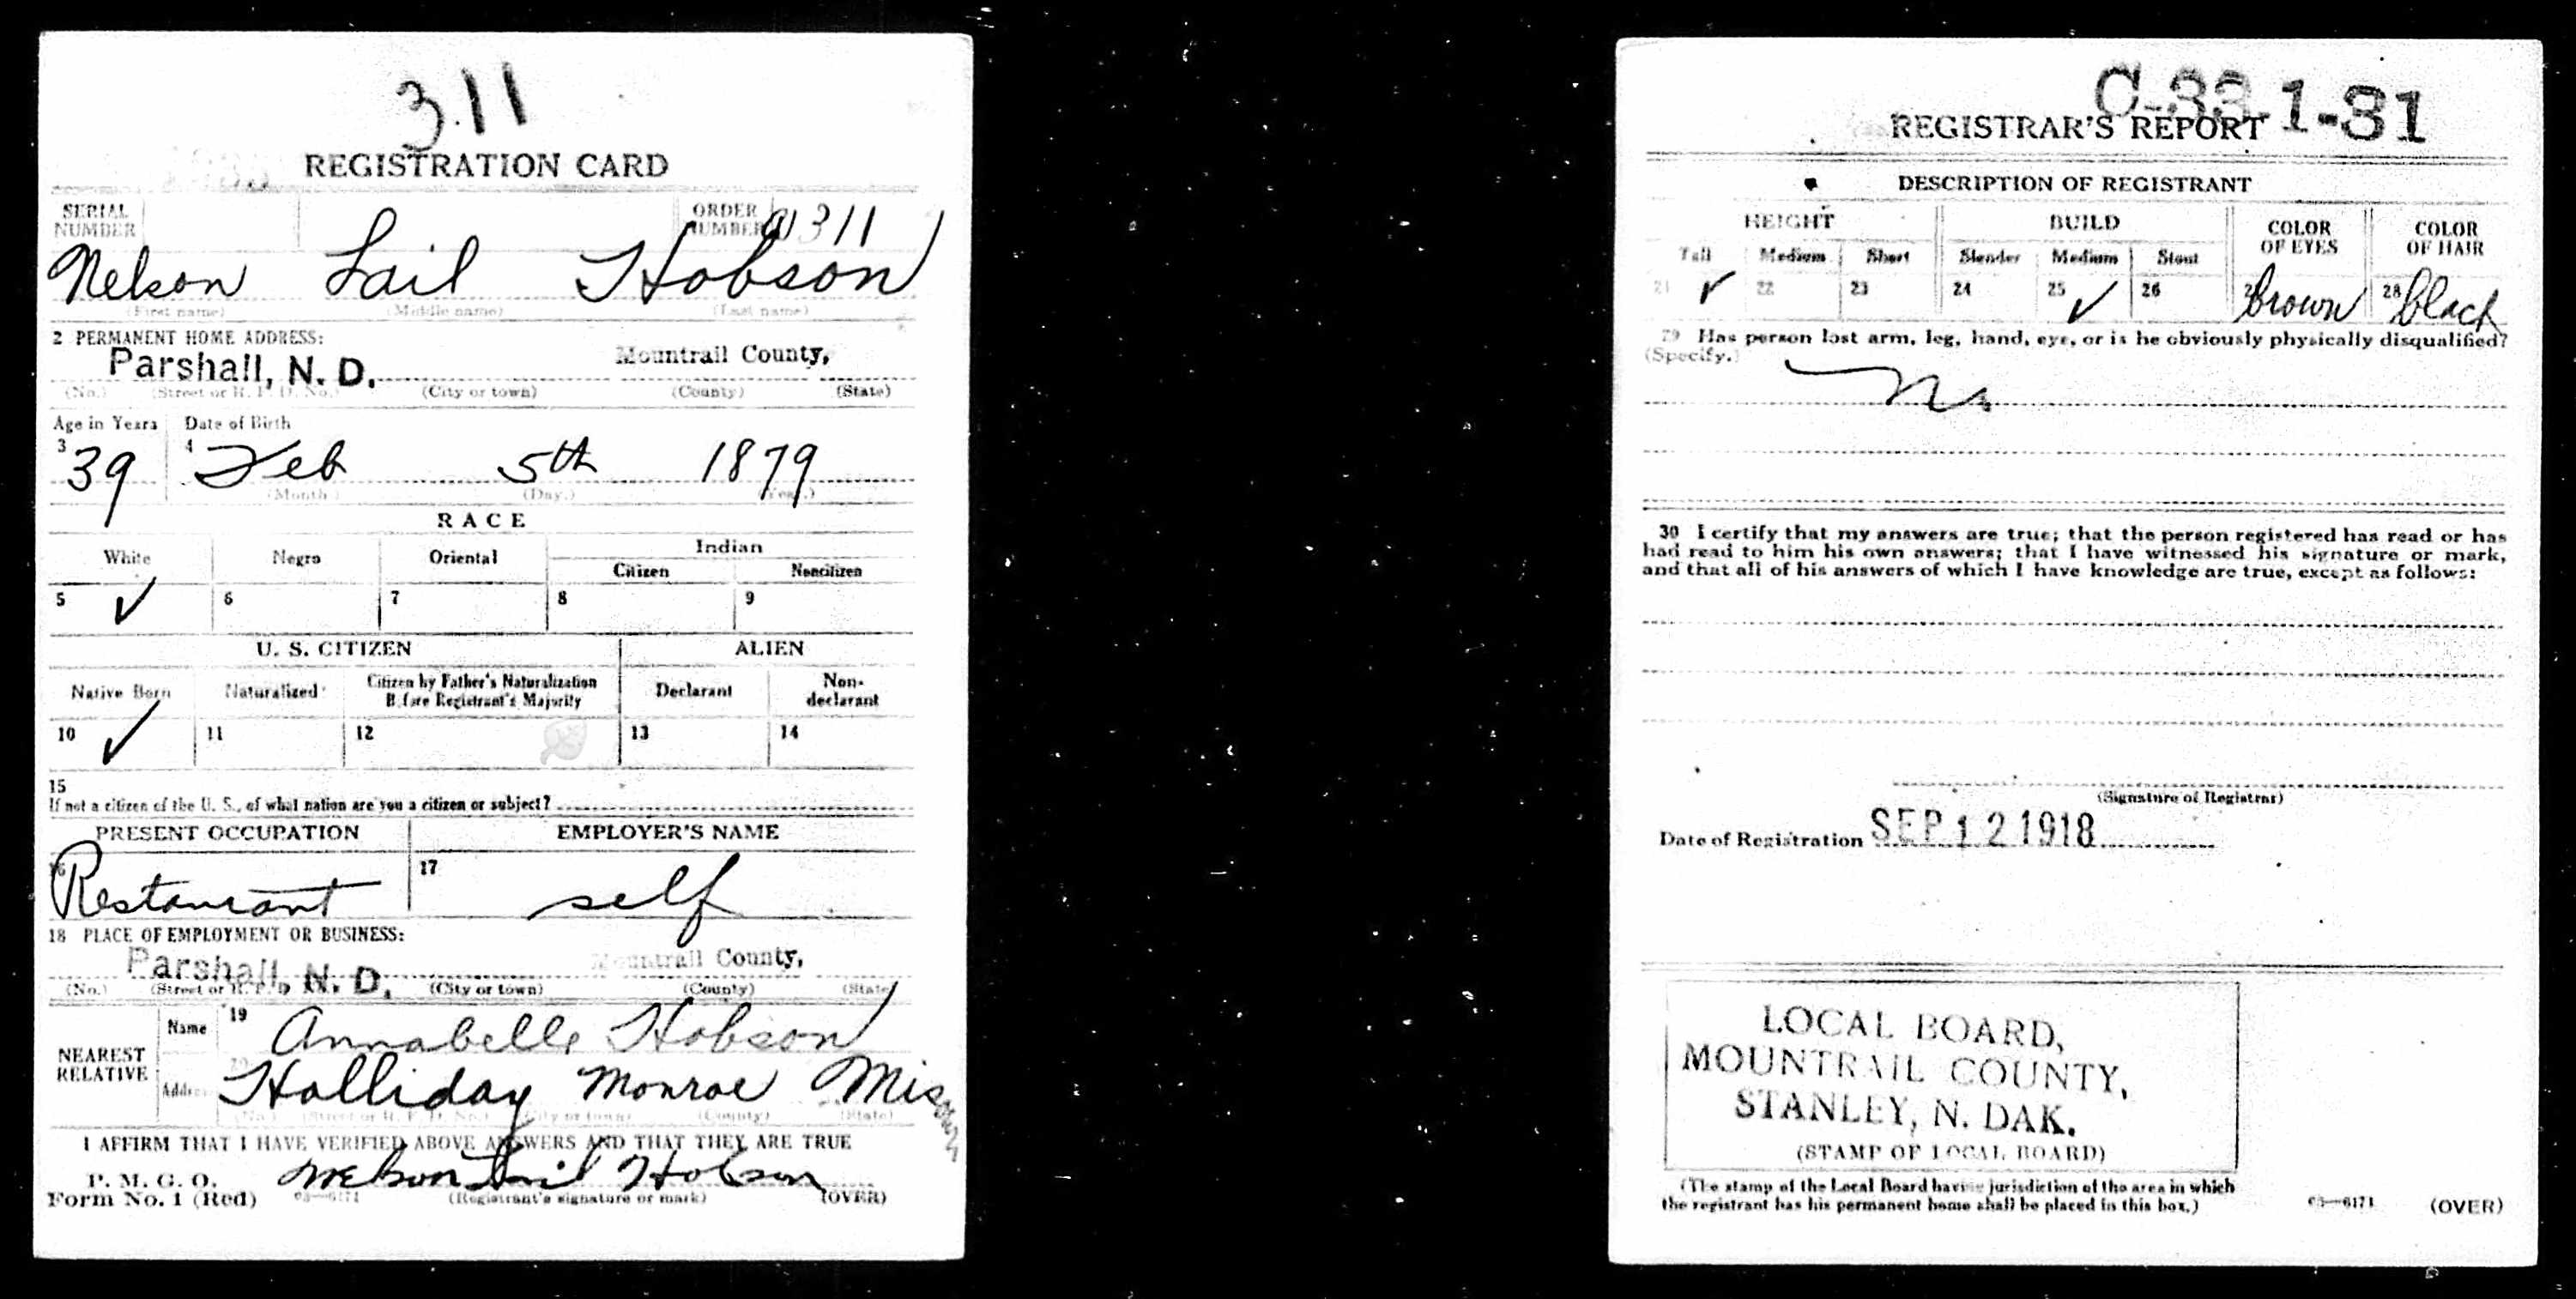 311
REGISTRATION CARD
SERIAL NUMBER
ORDER NUMBER 311
Nelson Lail Hobson
(First name) (Middle name) (Last name)
2 PERMANENT HOME ADDRESS:
Parshall, N. D. Mountrail County,
(No.) (Street or R. F. D. No.) (City or town) (County) (State)
Age in Years Date of Birth
3 39 4 Feb 5th 1879
(Month.) (Day.) (Year.)
RACE
White Negro Oriental Indian
Citizen Noncitizen
5 ✓ 6 7 8 9
U. S. CITIZEN ALIEN
Native Born Naturalized Citizen by Father's Naturalization Before Registrant's Majority Declarant Non-declarant
10 ✓ 11 12 13 14
15
If not a citizen of the U. S., of what nation are you a citizen or subject?
PRESENT OCCUPATION EMPLOYER'S NAME
16 Restaurant 17 self
18 PLACE OF EMPLOYMENT OR BUSINESS:
Parshall, N. D. Mountrail County,
(No.) (Street or R. F. D. (City or town) (County) (State)
NEAREST RELATIVE
Name 19 Annabelle Hobson
Address 20 Holliday Monroe Missouri
(No.) (Street or R. F. D. No.) (City or town) (County) (State)
I AFFIRM THAT I HAVE VERIFIED ABOVE ANSWERS AND THAT THEY ARE TRUE
P. M. G. O.
Form No. 1 (Red) 03—6171 Nelson Lail Hobson
(Registrant's signature or mark) (OVER)
C-33-1-31
REGISTRAR'S REPORT
DESCRIPTION OF REGISTRANT
HEIGHT BUILD COLOR OF EYES COLOR OF HAIR
Tall Medium Short Slender Medium Stout
21 ✓ 22 23 24 25 ✓ 26 27 brown 28 black
29 Has person lost arm, leg, hand, eye, or is he obviously physically disqualified?
(Specify.)
No
30 I certify that my answers are true; that the person registered has read or has
had read to him his own answers; that I have witnessed his signature or mark,
and that all of his answers of which I have knowledge are true, except as follows:
(Signature of Registrar)
Date of Registration SEP 12 1918
LOCAL BOARD,
MOUNTRAIL COUNTY,
STANLEY, N. DAK.
(STAMP OF LOCAL BOARD)
(The stamp of the Local Board having jurisdiction of the area in which
the registrant has his permanent home shall be placed in this box.)
03—6171 (OVER)